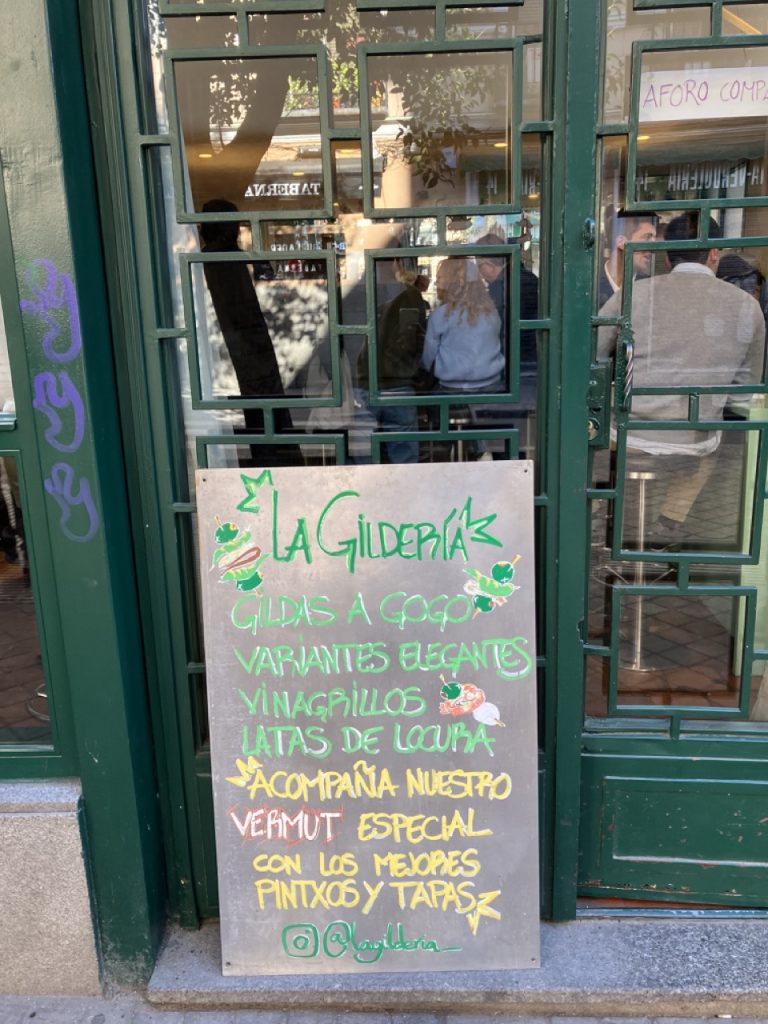 AFORO
TABERNA
LA GILDERÍA
GILDAS A GOGO
VARIANTES ELEGANTES
VINAGRILLOS
LATAS DE LOCURA
ACOMPAÑA NUESTRO
VERMUT ESPECIAL
CON LOS MEJORES
PINTXOS Y TAPAS
@lagilderia_